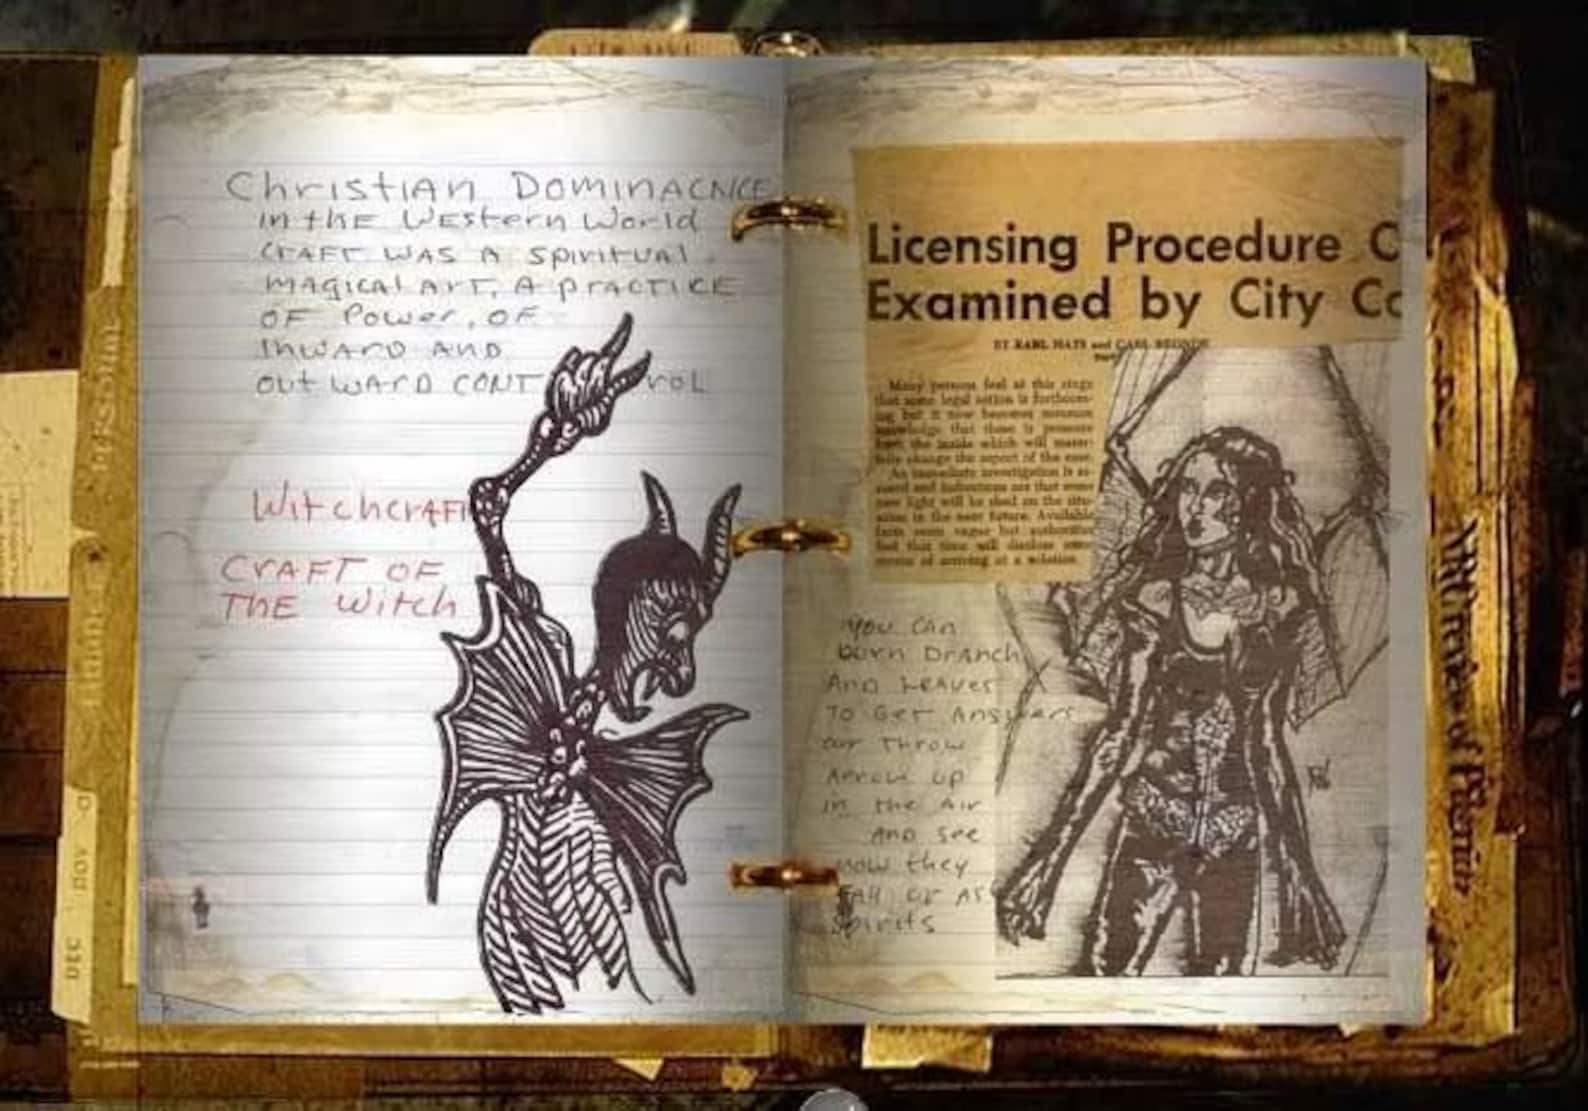 Christian Dominacnce
in the Western World
Craft was a spiritual
magical art, a practice
of Power, of
inward and
outward control
Witchcraft
Craft of
the Witch
Licensing Procedure C
Examined by City Co
BY KARL HAYS and CARL
Many persons feel at this stage
that some legal action is forthcom-
ing, but it now becomes common
knowledge that there is pressure
from the inside which will mater-
ially change the aspect of the case.
An immediate investigation is as-
sured and indications are that some
new light will be shed on the situ-
ation in the near future. Available
facts seem vague but authorities
feel that time will disclose some
means of arriving at a solution.
You can
burn Branch
And Leaves
To Get Answers
or Throw
Arrow up
in the Air
And see
How they
Fall or As
Spirits
DEC
NOV